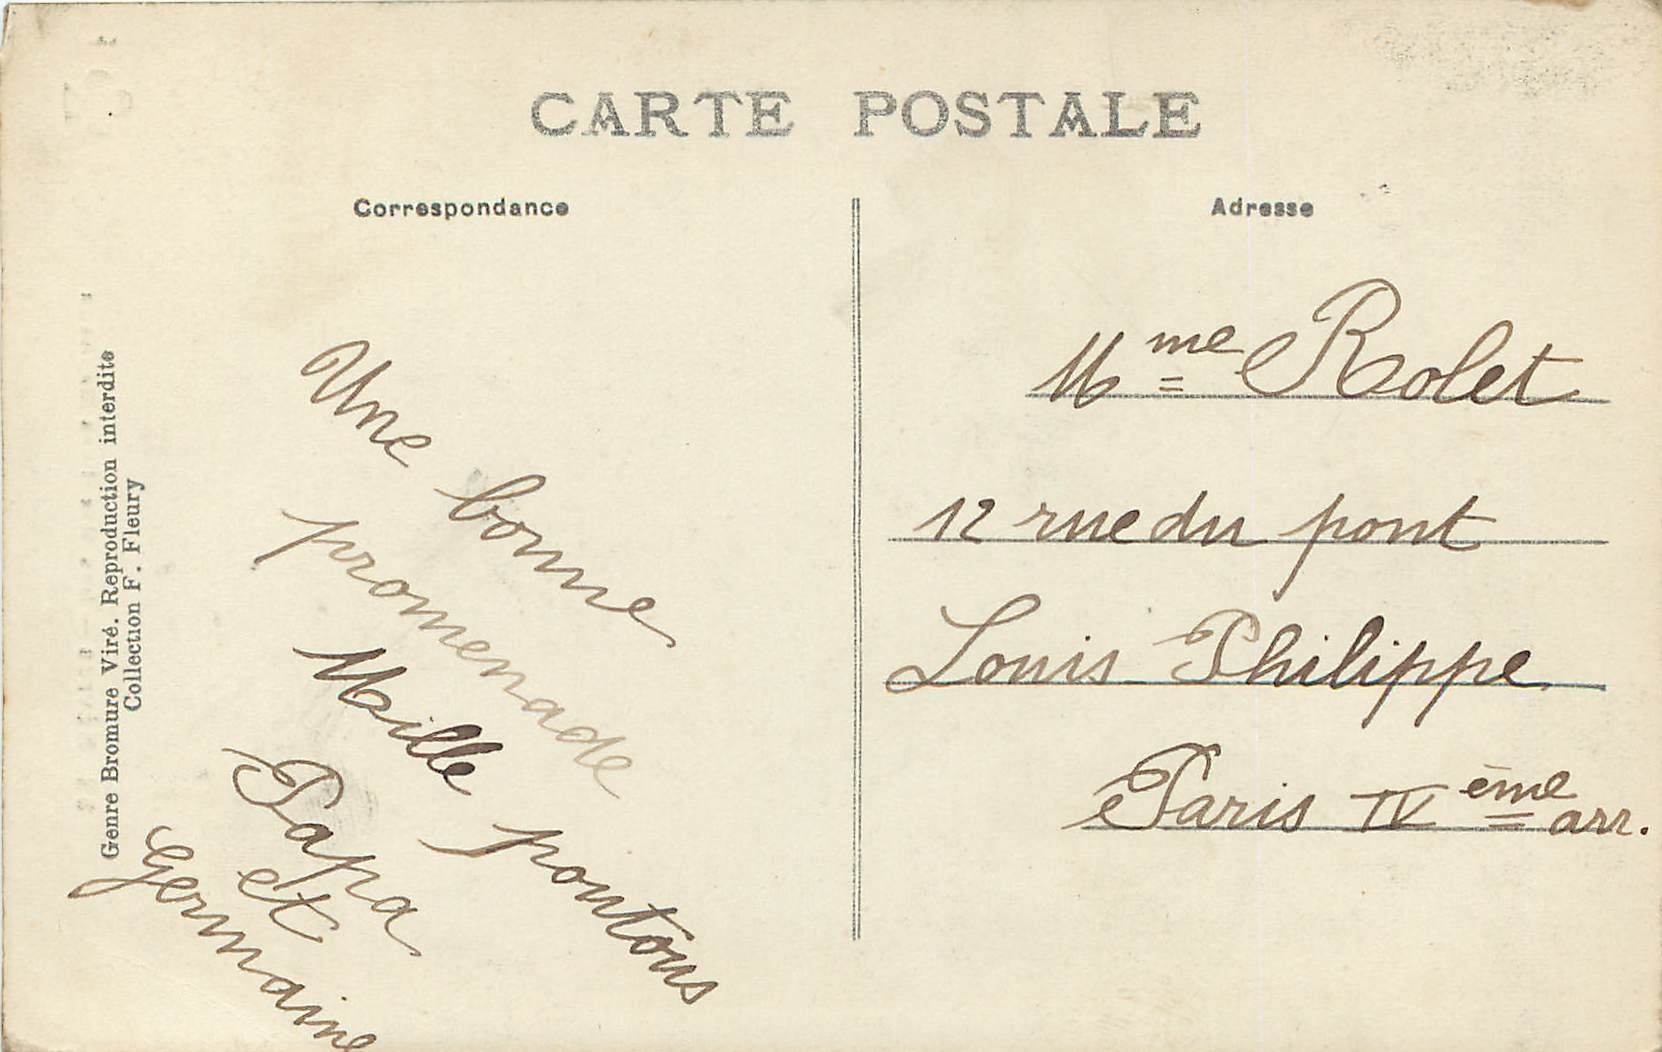 CARTE POSTALE
Correspondance
Adresse
Genre Bromure Viré. Reproduction interdite
Collection F. Fleury
Une bonne
promenade
Mille poutous
Papa
et
Germaine
Mme Rolet
12 rue du pont
Louis Philippe
Paris IV ème arr.